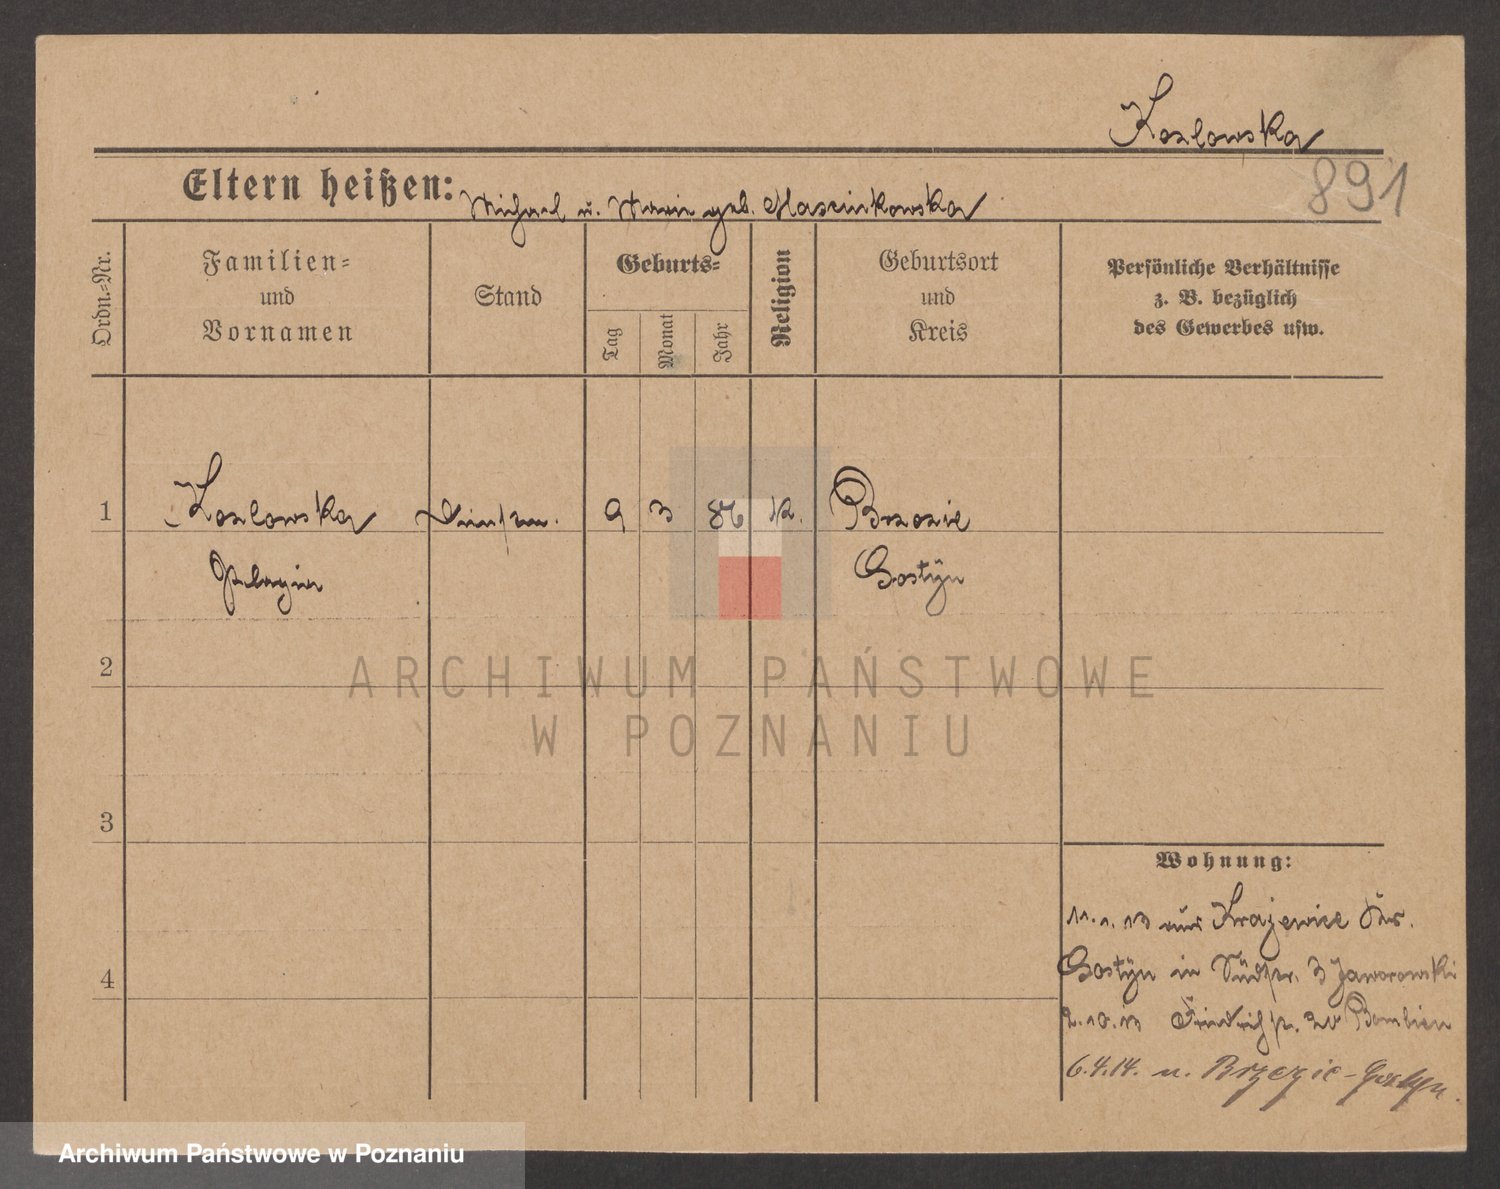 Kozlowska
891
Eltern heißen: Michael u. Marie geb.
Ordn.=Nr.
Familien=
und
Vornamen
Stand
Geburts=
Tag
Monat
Jahr
Religion
Geburtsort
und
Kreis
Persönliche Verhältnisse
z. B. bezüglich
des Gewerbes usw.
1
Kozlowska
9 3 86 k.
Brzezie
Pelagia
Gostÿn
2
ARCHIWUM PAŃSTWOWE
W POZNANIU
3
Wohnung:
11.1.13 aus Krajewice Krs.
4
Gostÿn in Südstr. 3 Jaworowski
2.10.13 Friedrichstr. 20
6.4.14. n. Brzezie-Gostyn.
Archiwum Państwowe w Poznaniu